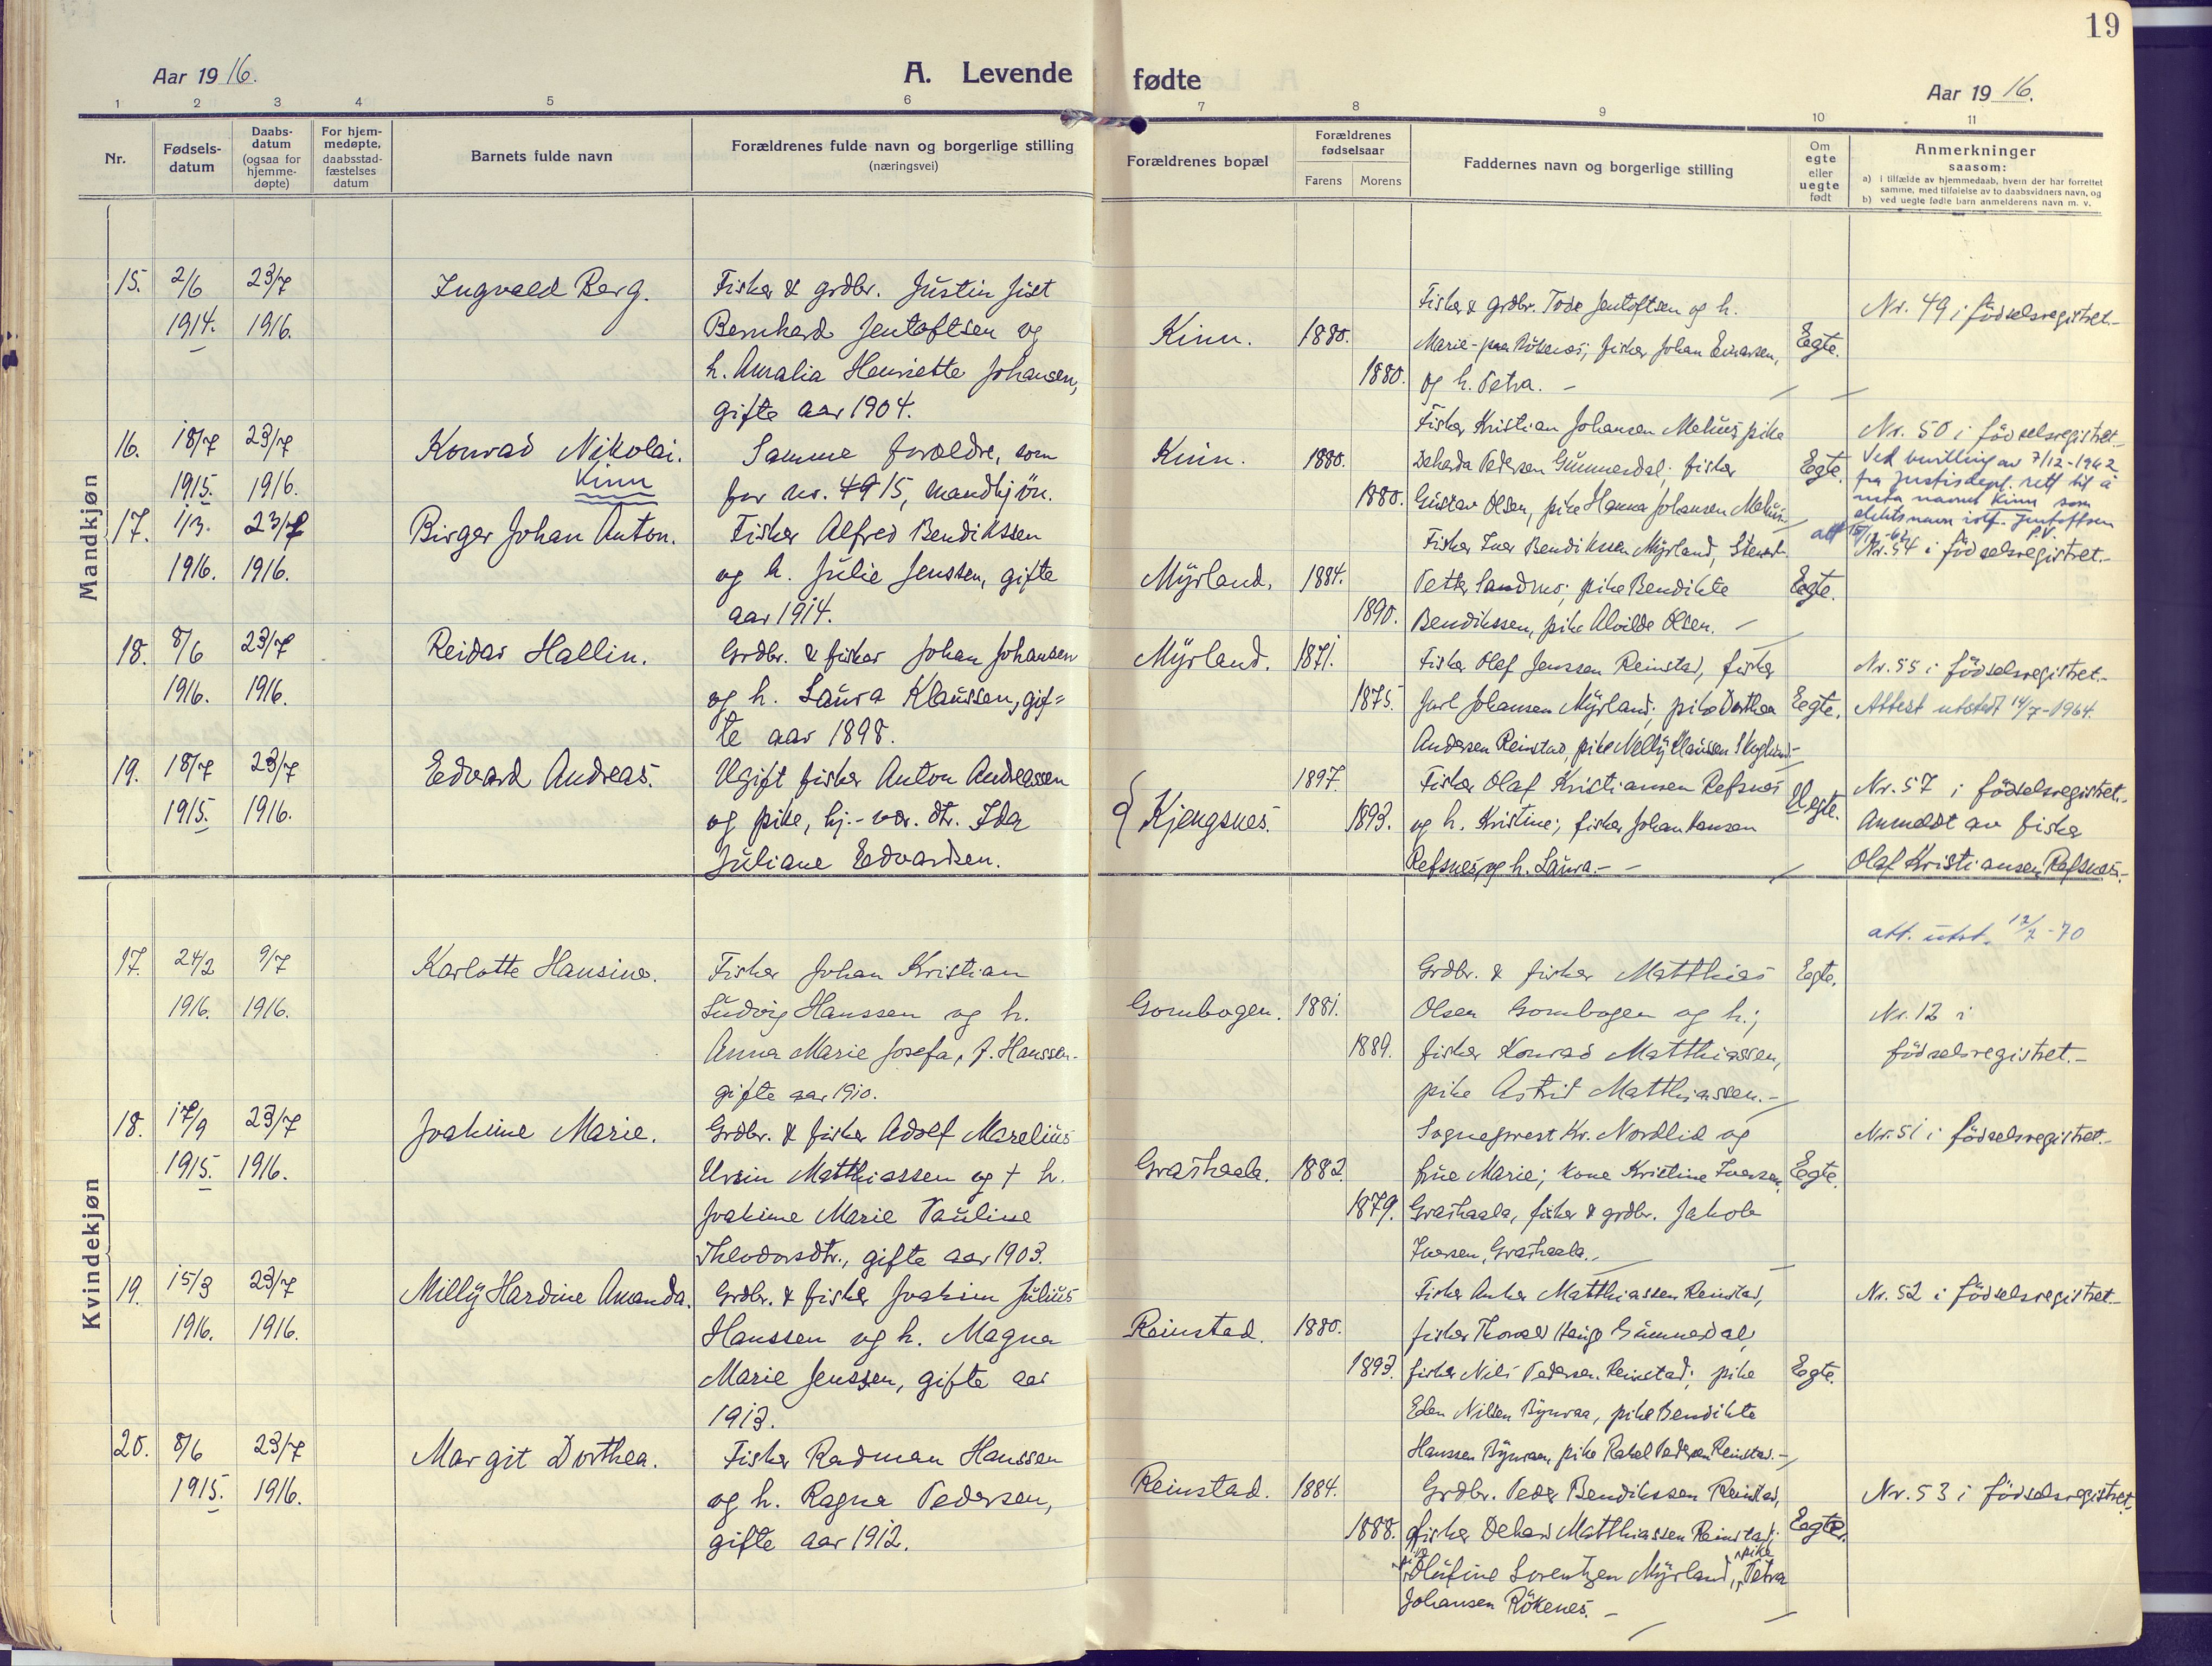 19
Aar 1916.
A. Levende fødte
Aar 1916.
1 2 3 4 5 6 7 8 9 10 11
Nr.
Fødsels-
datum
Daabs-
datum
(ogsaa for
hjemme-
døpte)
For hjem-
medøpte,
daabsstad-
fæstelses
datum
Barnets fulde navn
Forældrenes fulde navn og borgerlige stilling
(næringsvei)
Forældrenes bopæl
Forældrenes
fødselsaar
Farens Morens
Faddernes navn og borgerlige stilling
Om
egte
eller
uegte
født
Anmerkninger
saasom:
a) i tilfælde av hjemmedaab, hvem der har forrettet
samme, med tilføielse av to daabsvidners navn, og
b) ved uegte fødte barn anmelderens navn m. v.
Mandkjøn
15. 2/6 1914. 23/7 1916.
Ingvald Berg.
Fisker & grdbr. Justin Just
Bernhard Jentoftsen og
h. Amalia Henriette Johansen,
gifte aar 1904.
Kinn. 1880. 1880.
Fisker & grdbr. Tode Jentoftsen og h.
Marie - paa Rökenes; fisker Johan Einarsen,
og h. Petra. -
Egte.
Nr. 49 i födselsregistret.-
16. 18/7 1915. 23/7 1916.
Konrad Nikolai.
Kinn
Samme forældre, som
for nr. 49 15, mandkjön.
Kinn. 1880. 1880.
Fisker Kristian Johansen Melius, pike
Deharda Pedersen Gümmedal; fisker
Gustav Olsen, pike Hanna Johansen Melius.
Egte.
Nr. 50 i födselsregistret.-
Ved bevilling av 7/12-1962
fra Justisdept. rett til å
neta navnet Kinn som
slektsnavn istf. Jentoftsen
P.V.
att 15/12-62
17. 1/3. 1916. 23/7 1916.
Birger Johan Anton.
Fisker Alfred Bendikssen
og h. Julie Jenssen, gifte
aar 1914.
Myrland. 1884. 1890.
Fisker Iver Bendiksen Myrland,
Petter Sandnes; pike Bendikte
Bendikssen, pike Alvilde Olsen. -
Egte.
Nr. 54 i födselsregistret.-
18. 8/6 1916. 23/7 1916.
Reidar Hallin.
Grdbr. & fisker Johan Johansen
og h. Laura Klaussen, gif=
te aar 1898.
Myrland. 1871. 1875.
Fisker Olaf Jenssen Reinstad, fisker
Jarl Johansen Myrland; pike Dorthea
Andersen Reinstad, pike Nelly Klaussen Skoglund.-
Egte.
Nr. 55 i födselsregistret.-
Attest utstedt 14/7-1964.
19. 18/7 1915. 23/7 1916.
Edvard Andreas.
Ugift fisker Anton Andreassen
og pike, hj.-vær. dtr. Ida
Juliane Edvardsen.
Kjengsnes. 1897. 1893.
Fisker Olaf Kristiansen Refsnes
og h. Kristine; fisker Johan Hansen
Refsnes, og h. Laura.-
Uegte.
Nr. 57 i födselsregistret.
Anmeldt av fisker
Olaf Kristiansen, Refsnes.-
Kvindekjøn
17. 24/2 1916. 9/7 1916.
Karlotte Hansine.
Fisker Johan Kristian
Ludvig Hanssen og h.
Anna Marie Josefa, f. Hanssen.
gifte aar 1910.
Gombogen. 1881. 1889.
Grdbr. & fisker Matthias
Olsen Gombogen og h.;
fisker Konrad Matthiassen,
pike Astrid Matthiassen.-
Egte.
att. utst. 12/2-70
Nr. 12 i
födselsregistret.-
18. 17/9 1915. 23/7 1916.
Joakime Marie.
Grdbr. & fisker Adolf Marelius
Ursin Matthiassen og † h.
Joakime Marie Pauline
Theodorsdtr., gifte aar 1903.
Grashaala. 1882. 1879.
Sogneprest Kr. Nordlid og
frue Marie; kone Kristine Iversen,
Grashaala, fisker & grdbr. Jakob
Iversen, Grashaala.-
Egte.
Nr. 51 i födselsregistret.-
19. 15/3 1916. 23/7 1916.
Milly Hardine Amanda.
Grdbr. & fisker Joakim Julius
Hanssen og h. Magna
Marie Jenssen, gifte aar
1913.
Reinstad. 1880. 1893.
Fisker Anker Matthiassen Reinstad,
fisker Thorvald Gümmedal,
fisker Nils Pedersen Reinstad; pike
Eden Nilsen Bynvaa, pike Bendikte
Hanssen Bynvaa, pike Rakel Pedersen Reinstad.-
Egte.
Nr. 52 i födselsregistret.-
20. 8/6 1915. 23/7 1916.
Margit Dorthea.
Fisker Radman Hanssen
og h. Ragna Pedersen,
gifte aar 1912.
Reinstad. 1884. 1888.
Grdbr. Peder Bendikssen Reinstad,
fisker Dehard Matthiassen Reinstad;
pike Olufine Lorentzen Myrland, pike Petra
Johansen Rökenes. -
Egte.
Nr. 53 i födselsregistret.